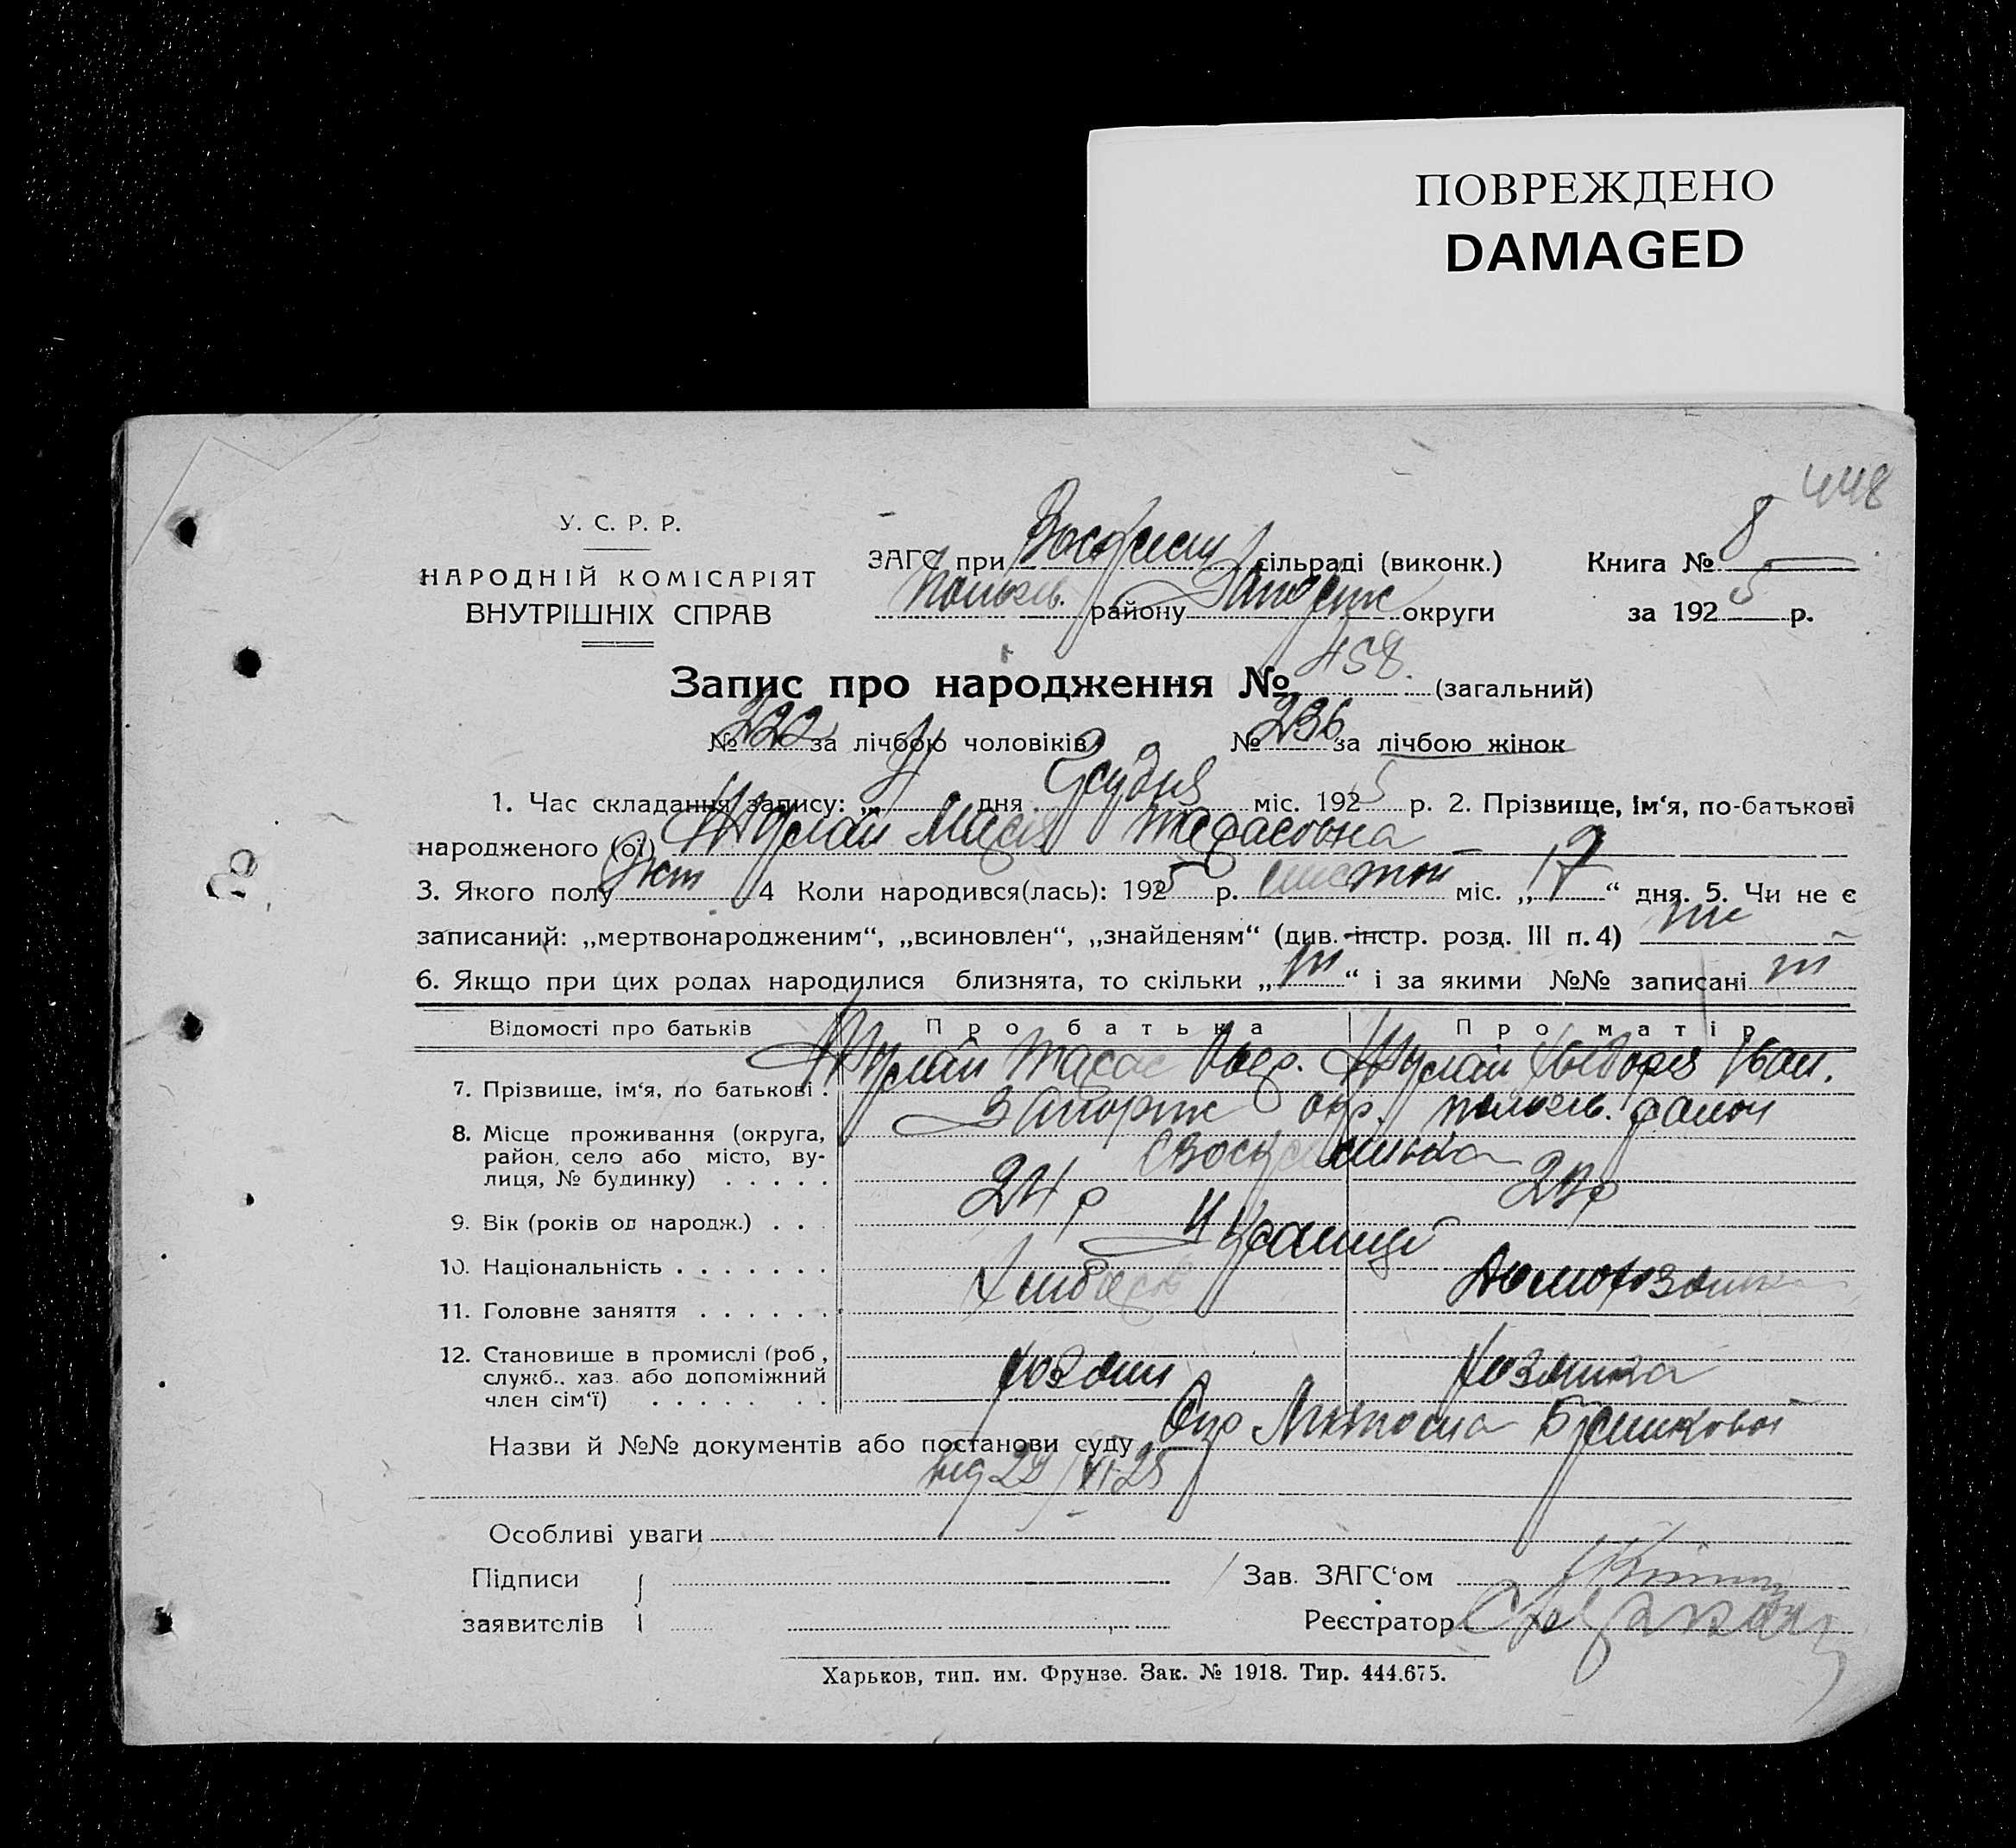 ПОВРЕЖДЕНО
DAMAGED
448
У. С. Р. Р.
НАРОДНІЙ КОМІСАРІЯТ
ВНУТРІШНІХ СПРАВ
ЗАГС при сільраді (виконк.)
району округи
Книга № 8
за 1925 р.
Запис про народження № 458. (загальний)
№ 222 за лічбою чоловіків № 236 за лічбою жінок
1. Час складання запису: „ дня Грудня міс. 1925 р. 2. Прізвище, ім‘я, по-батькові
народженого (ої) Марія Тарасовна
3. Якого полу жін 4 Коли народився(лась): 1925 р. листоп міс. „17“ дня. 5. Чи не є
записаний: „мертвонародженим“, „всиновлен“, „знайденям“ (див. інстр. розд. III п. 4) ні
6. Якщо при цих родах народилися близнята, то скільки „ “ і за якими №№ записані
Відомості про батьків Про батька Про матір
7. Прізвище, ім‘я, по батькові . Тарас Иван.
8. Місце проживання (округа, Запорж окр. район
район, село або місто, ву-
лиця, № будинку) . . . . .
9. Вік (років од народж.) . . 24 р
10. Національність . . . . . . . Українці
11. Головне заняття . . . . . . Хлібороб Домохозяйка
12. Становище в промислі (роб,
служб.. хаз. або допоміжний хозяин хозяйка
член сім‘ї) . . . . . . .
Назви й №№ документів або постанови суду
Особливі уваги
Підписи
заявителів
Зав. ЗАГС‘ом
Реєстратор
Харьков, тип. им. Фрунзе. Зак. № 1918. Тир. 444.675.